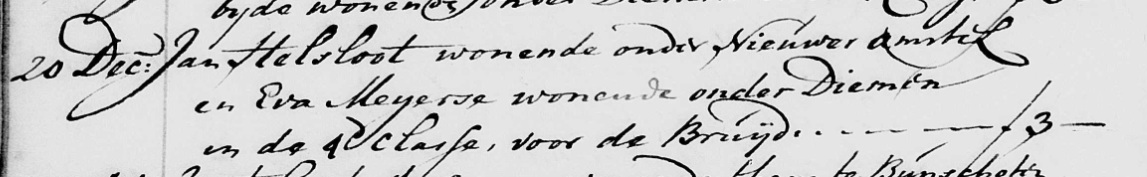 byde wonen
20 Dec: Jan Helsloot wonende onder Nieuwer Amstel
en Eva Meyerse wonende onder Diemen
in de 4e Classe, voor de Bruijd . . . — — — f 3 —
te Bunschoten